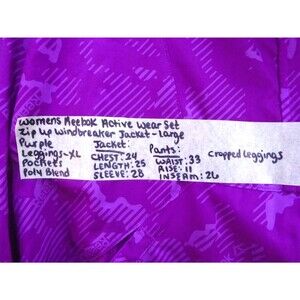 Womens Reebok Active Wear Set
Zip Up Windbreaker Jacket-large
Purple
Leggings-XL
Pockets
Poly Blend
Jacket:
CHEST: 24
LENGTH: 25
SLEEVE: 28
Pants:
WAIST: 33
RISE: 11
INSEAM: 26
Cropped Leggings